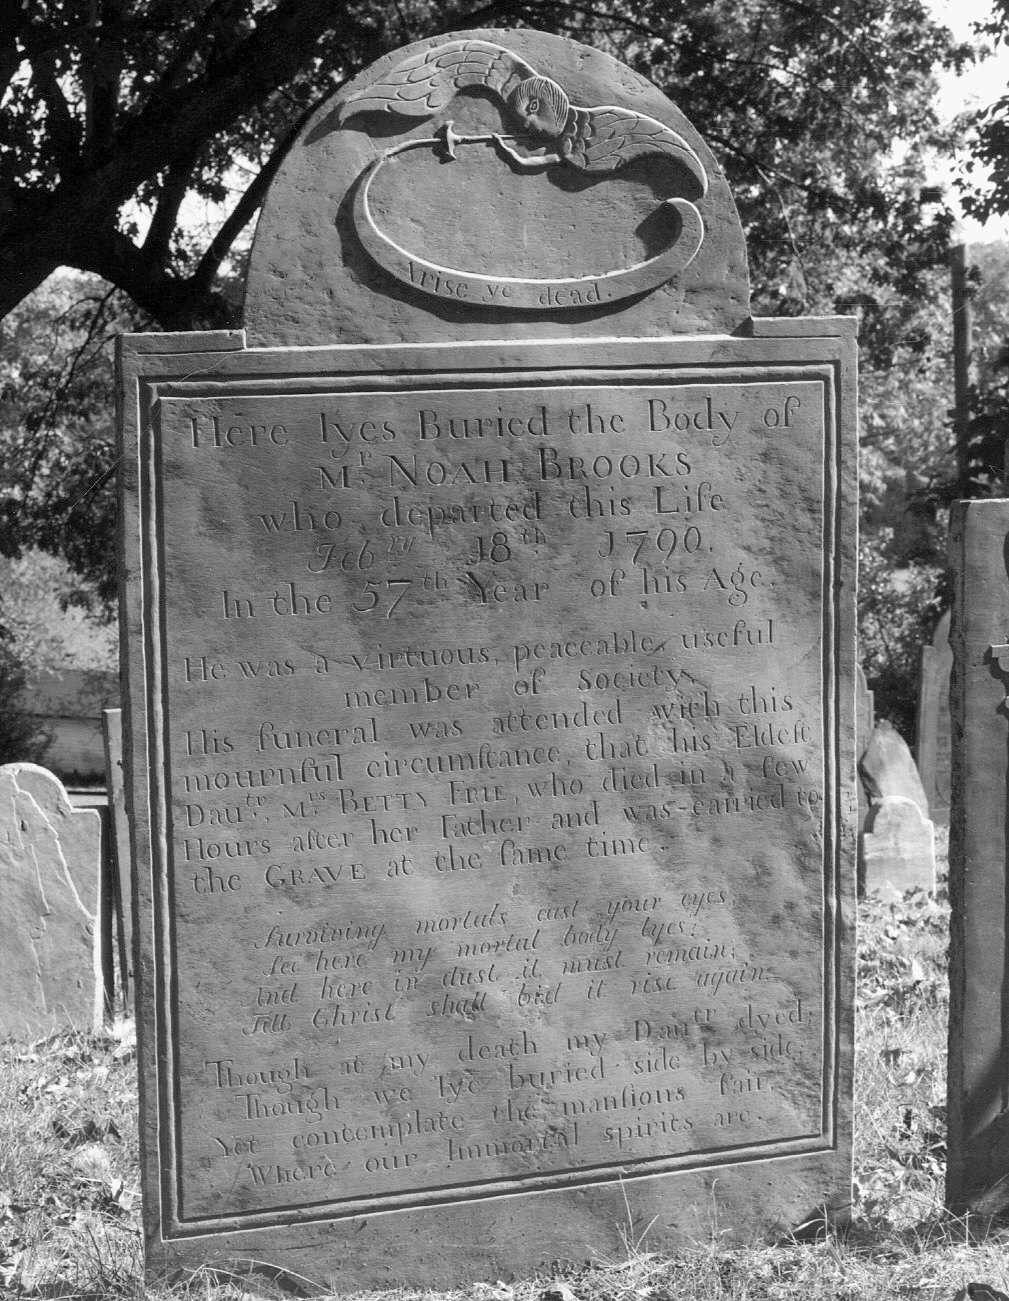 Arise ye dead.
Here lyes Buried the Body of
Mr. NOAH BROOKS
who departed this Life
Febry. 18th 1790.
In the 57th Year of his Age.
He was a virtuous, peaceable, uſeful
member of Society.
His funeral was attended with this
mournful circumſtance, that his Eldeſt
Dautr. Mrs BETTY FRIE, who died in a few
Hours after her Father and was carried to
the GRAVE at the ſame time.
Surviving mortals cast your eyes,
See here my mortal body lyes;
And here in dust it must remain;
Till Christ shall bid it rise again.
Though at my death my Dautr dyed;
Though we lye buried side by side;
Yet contemplate the manſions fair,
Where our Immortal spirits are.